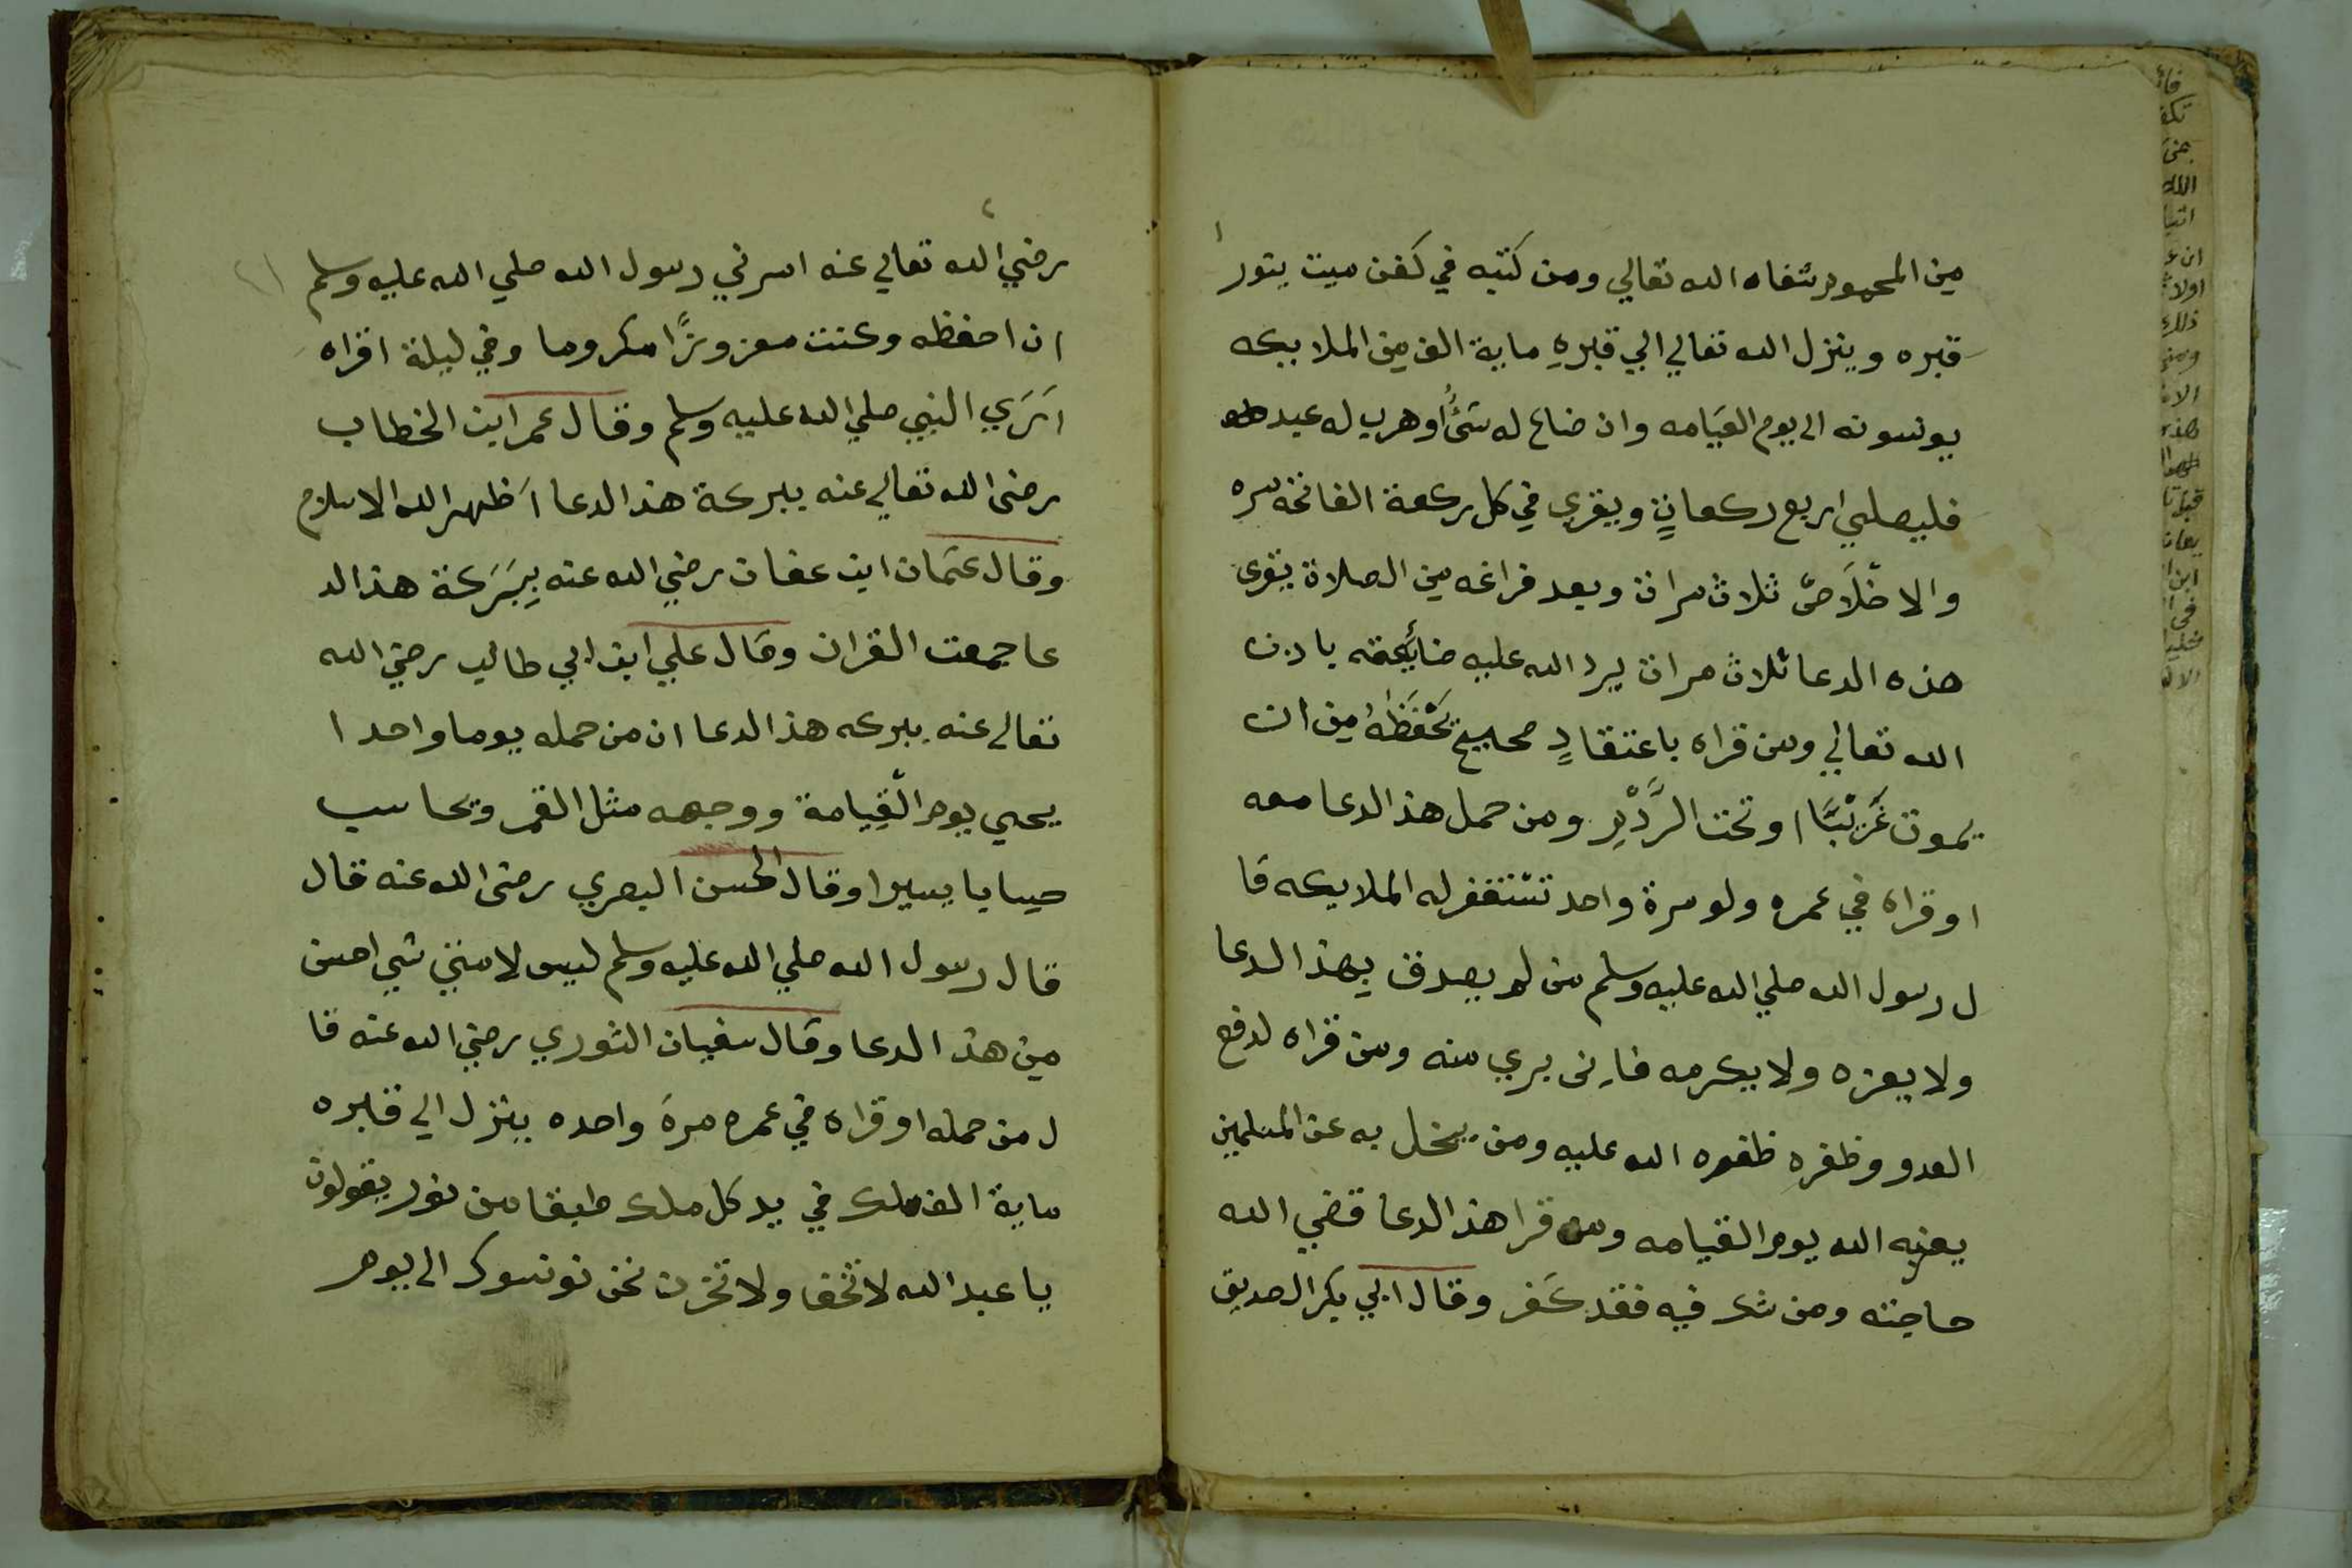 من المحموم شفاه الله تعالي ومن كتبه في كفن ميت ينور
قبره وينزل الله تعالي الي قبرهِ ماية الف من الملايكه
يونسونه الى يوم القيامه وان ضاع له شئٌ او هرب له عبد
فليصلي اربع ركعاتٍ ويقرى في كل ركعة الفاتحة مره
والاخلَاصّ ثلاث مرات وبعد فراغه من الصلاة يقرى
هذه الدعا ثلاث مرات يرد الله عليه ضايعته باذن
الله تعالي ومن قراه باعتقادٍ صحيح يحْفَظهُ من ان
يموت غَريْبًا او تحت الرَّدْمِ ومن حمل هذ الدعا معه
او قراه في عمره ولو مرة واحد تستغفر له الملايكه قا
ل رسول الله صلي الله عليه وسلم من لم يصدق بهذ الدعا
ولا يعزه ولا يكرمه فاِنى بري منه ومن قراه لدفع
العدو وظفره ظفره الله عليه ومن يبخل به عن المسلمين
الله يوم القيامه ومن قرا هذ الدعا قضي الله
حاجته ومن شك فيه فقد كَفر وقال ابي بكر الصديق
رضي الله تعالي عنه امرني رسول الله صلي الله عليه وسلم
ان احفظه وكنت معزوزًا مكروما وفي ليلة اقراه
اَرَي النبي صلي الله عليه وسلم وقال عمر ابن الخطاب
رضى الله تعالي عنه ببركة هذ الدعا اَظهر الله الاسلام
وقال عثمان ابن عفان رضي الله عنه بِبَرَكة هذ الد
عا جمعت القران وقال علي ابن ابي طالب رضي الله
تعالى عنه ببركه هذ الدعا ان من حمله يوما واحدا
يحيي يوم الْقِيامة ووجهه مثل القمر ويحاسب
حسابا يسيرا وقال الحسن البصري رضى الله عنه قال
قال رسول الله صلي الله عليه وسلم ليس لامتي شي احسن
من هذ الدعا وقال سفيان الثوري رضي الله عنه قا
ل من حمله او قراه في عمره مرةَ واحده ينزل الي قبره
ماية الف ملك في يد كل ملك طبقا من نور يقولون
يا عبد الله لا تخف ولا تحزن نحن نونسوك الى يوم